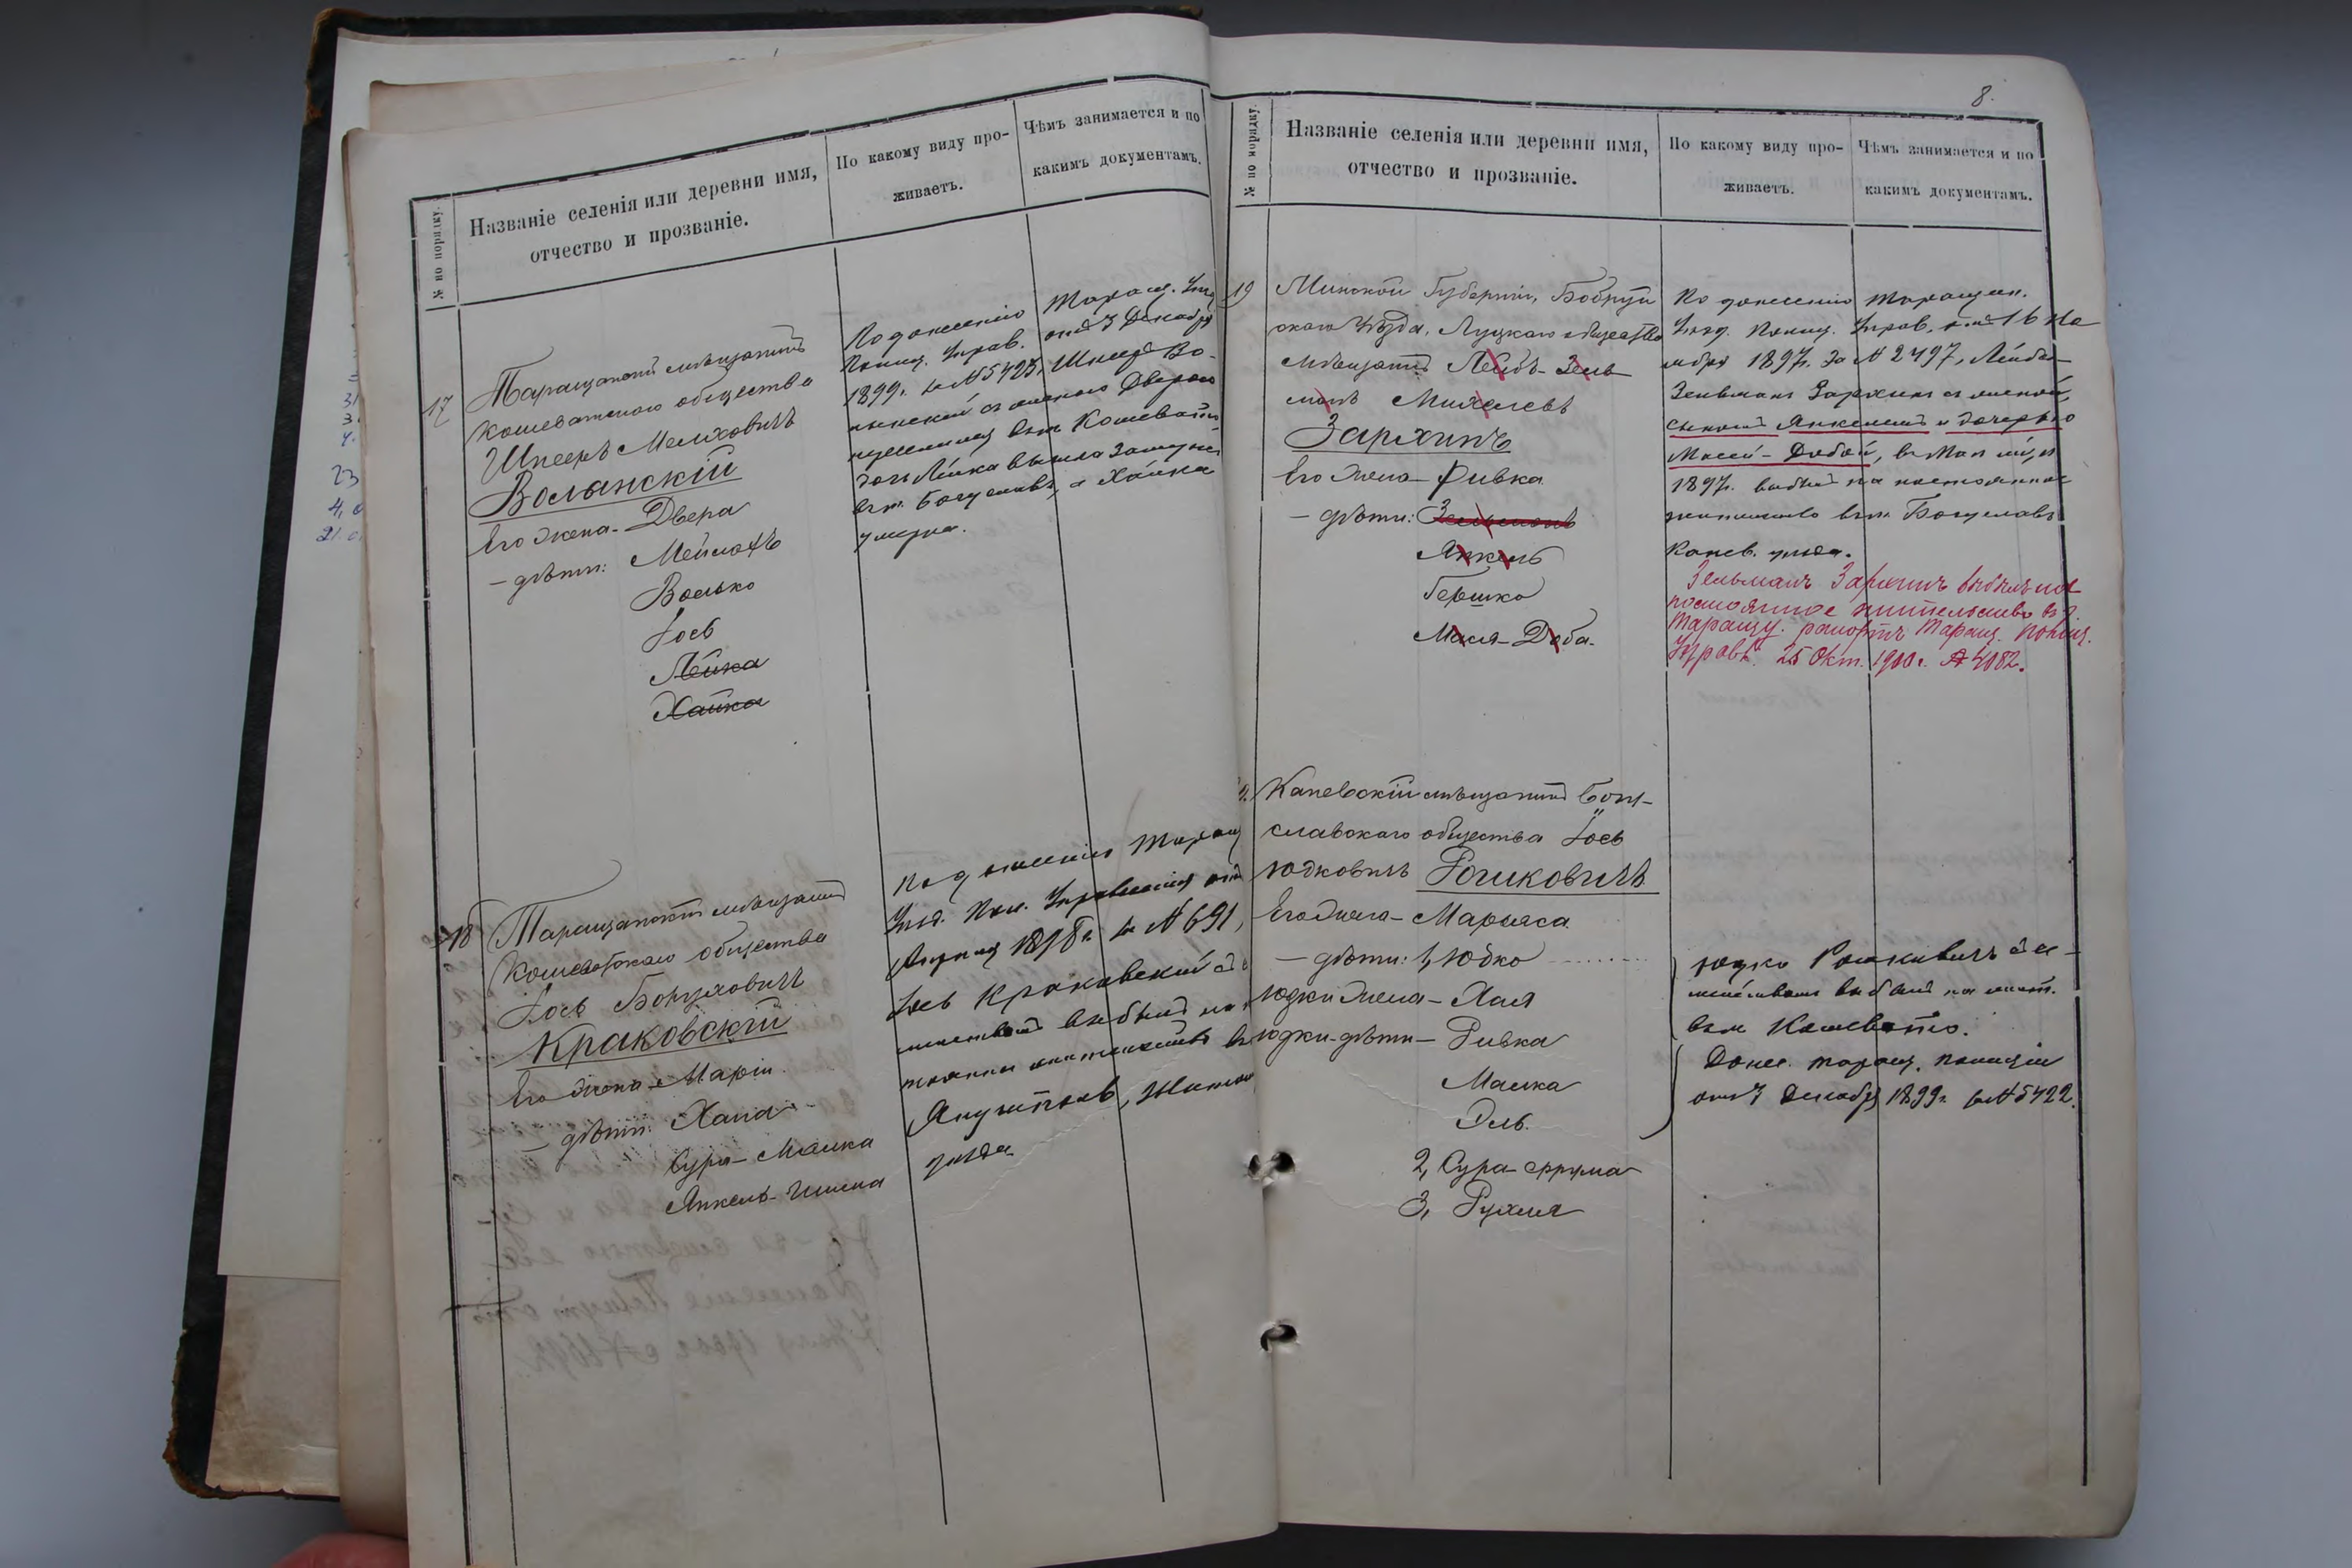 № по порядку.
Названіе селенія или деревни имя,
отчество и прозваніе.
По какому виду про-
живаетъ.
Чѣмъ занимается и по
какимъ документамъ.
17
Таращанскій мѣщанинъ
Кошеватскаго общества
Шнееръ Мелиховичъ
Волынскій
Его жена - Двера
— дѣти: Мейлохъ
Волько
Іось
Лейка
Хайка
По донесенію Таращ. Уѣзд.
Полиц. Управ. отъ 7 Декабря
1899 г. за № 5423, Шнеер Во-
лынский съ женою Дверою
въ м. Кошевато
дочь Лейка вышла замужъ
въ м. Богуславъ, а Хайка
умерла.
18
Таращанскій мѣщанинъ
Кошеватскаго общества
Іось Боруховичъ
Краковскій
Его жена - Марія
— дѣти: Хана
Сура-Малка
Янкель-Шимха
По донесенію Таращ
Уѣзд. Пол. Управленія отъ
1898 г. за № 691,
Іось Краковский съ се
мействомъ выбылъ на
жительство въ
уѣзда
8.
№ по порядку.
Названіе селенія или деревни имя,
отчество и прозваніе.
По какому виду про-
живаетъ.
Чѣмъ занимается и по
какимъ документамъ.
19
Минской Губерніи, Бобруй
скаго Уѣзда, Луцкаго общества
мѣщанинъ Лейбъ-Зель
манъ Михелевъ
Зархинъ
Его жена - Ривка
— дѣти: Зельманъ
Янкель
Гершко
Масля-Доба.
По донесенію Таращан.
Уѣзд. Полиц. Управ. отъ 16 Но
ября 1897 г. за № 2497, Лейба-
Зельман Зархин съ женой,
сыномъ Янкелемъ и дочерью
Масей-Добой, въ Мае мѣс.
1897 г. выбыл на постоянное
жительство въ м. Богуславъ
Канев. уѣзда.
Зельманъ Зархинъ выбылъ на
постоянное жительство въ г.
Таращу. рапортъ Таращ. Полиц.
Управ. 25 Окт. 1900 г. № 4082.
Каневскій мѣщанинъ Богу-
славскаго общества Іось
Юдковичъ Рошковичъ
Его жена - Марьяса
— дѣти: 1, Юдко
Юдки жена - Хая
Юдки-дѣти - Ривка
Малка
Эль.
2, Сура-Фрума
3, Рухля
Юдко Рошкович съ се-
мейством выбылъ на жит.
въ м Кошевато.
Донес. Таращ. Полиціи
отъ 7 Декабря 1899 г. за № 5422.